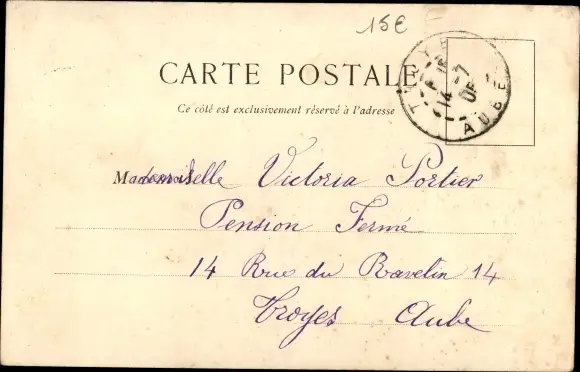 15€
CARTE POSTALE
Ce côté est exclusivement réservé à l'adresse
Mademoiselle Victoria Portier
Pension Fermé
14 Rue du Ravelin 14
Troyes Aube
14 -7
AUBE